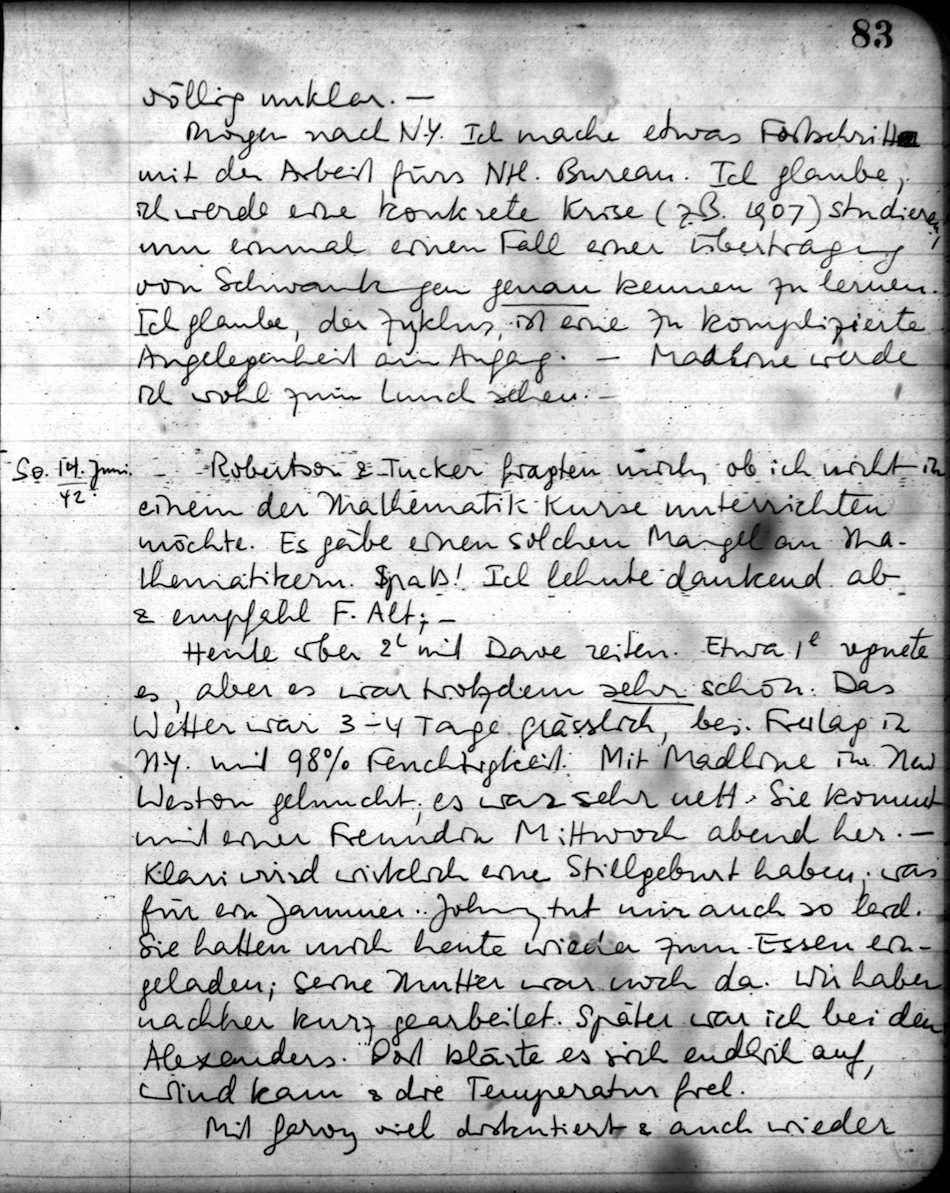 83
völlig unklar. —
Morgen nach N.Y. Ich mache etwas Fortschritte
mit der Arbeit fürs Ntl. Bureau. Ich glaube,
ich werde eine konkrete Krise (z.B. 1907) studieren,
um einmal einen Fall einer Übertragung
von Schwankungen genau kennen zu lernen.
Ich glaube, der Zyklus, ist eine zu komplizierte
Angelegenheit am Anfang. — Madlone werde
ich wohl zum Lunch sehen. —
So. 14. Juni.
42.
— Robertson & Tucker fragten mich, ob ich nicht in
einem der Mathematik Kurse unterrichten
möchte. Es gäbe einen solchen Mangel an Ma-
thematikern. Spaß! Ich lehnte dankend ab
& empfahl F. Alt; —
Heute über 2h mit Dave reiten. Etwa 1h regnete
es, aber es war trotzdem sehr schön. Das
Wetter war 3–4 Tage grässlich, bes. Freitag in
N.Y. mit 98% Feuchtigkeit. Mit Madlone im New
Weston geluncht; es war sehr nett. Sie kommt
mit einer Freundin Mittwoch abend her. —
Klari wird wirklich eine Stillgeburt haben; was
für ein Jammer.. Johnny tut mir auch so leid.
Sie hatten mich heute wieder zum Essen ein-
geladen; seine Mutter war noch da. Wir haben
nachher kurz gearbeitet. Später war ich bei den
Alexanders. Dort klärte es sich endlich auf,
Wind kam & die Temperatur fiel.
Mit viel diskutiert & auch wieder